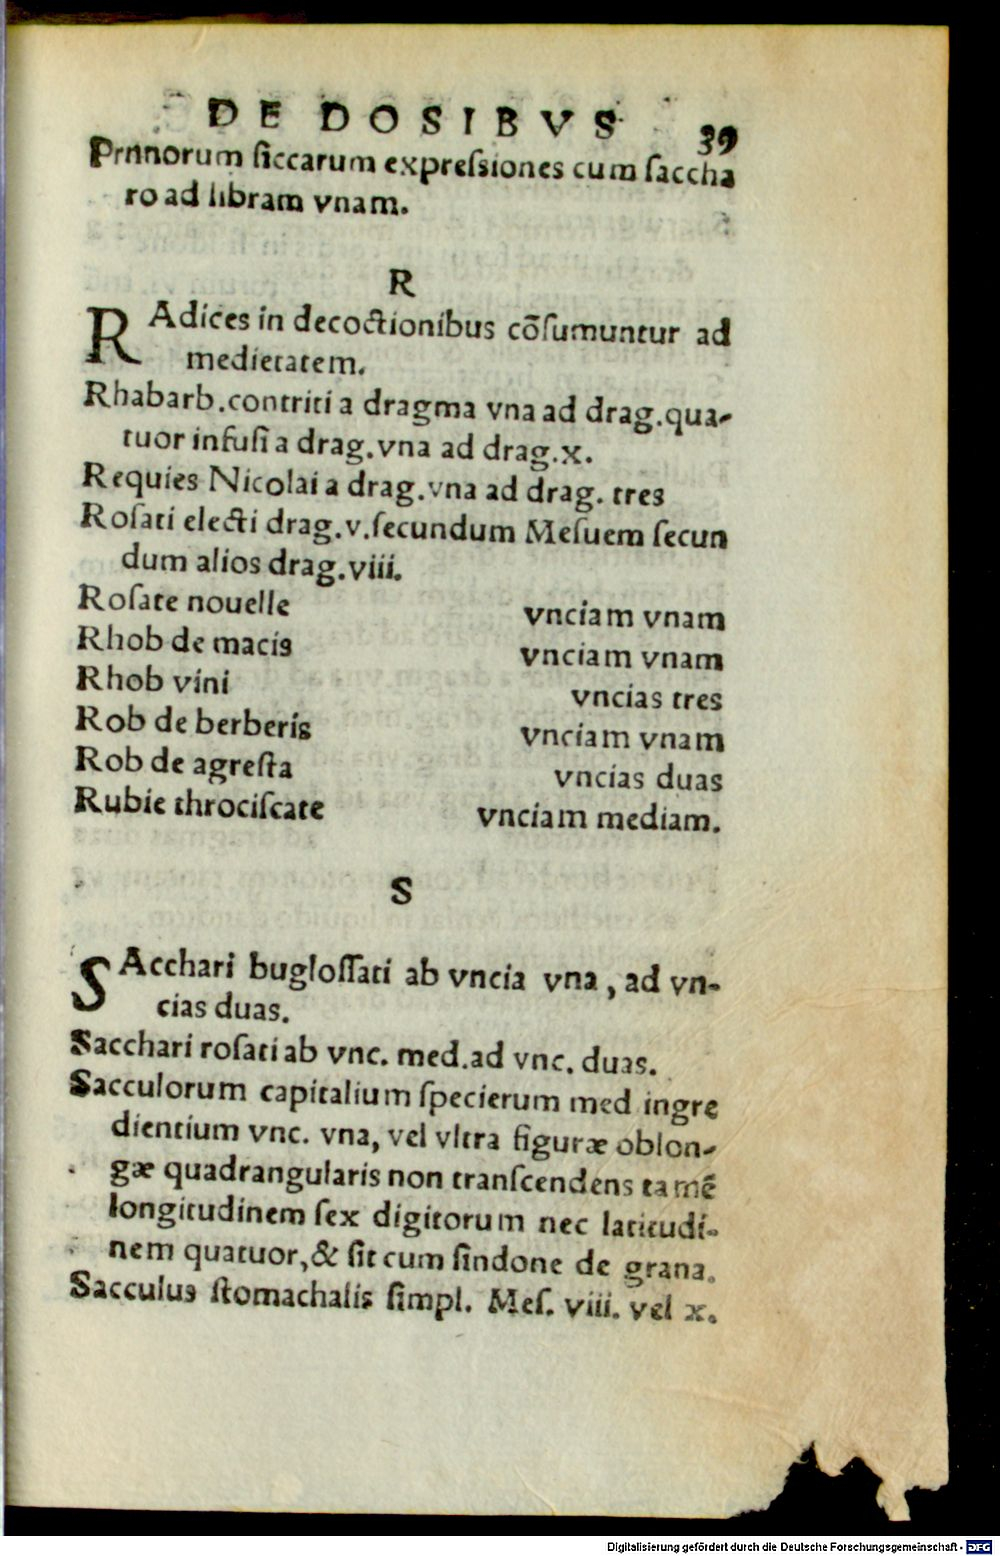 DE DOSIBVS
39
Prnnorum ſiccarum expreſsiones cum ſaccha
ro ad libram vnam.
R
RAdices in decoctionibus cõſumuntur ad
medietatem.
Rhabarb.contriti a dragma vna ad drag.qua-
tuor infuſi a drag.vna ad drag.x.
Requies Nicolai a drag.vna ad drag. tres
Roſati electi drag.v.ſecundum Meſuem ſecun
dum alios drag.viii.
Roſate nouelle vnciam vnam
Rhob de macis vnciam vnam
Rhob vini vncias tres
Rob de berberis vnciam vnam
Rob de agreſta vncias duas
Rubie throciſcate vnciam mediam.
S
SAcchari bugloſſati ab vncia vna, ad vn-
cias duas.
Sacchari roſati ab vnc. med.ad vnc. duas.
Sacculorum capitalium ſpecierum med ingre
dientium vnc. vna, vel vltra figuræ oblon-
gæ quadrangularis non tranſcendens tamẽ
longitudinem ſex digitorum nec latitudi-
nem quatuor,& ſit cum ſindone de grana.
Sacculus ſtomachalis ſimpl. Meſ. viii. vel x.
Digitalisierung gefördert durch die Deutsche Forschungsgemeinschaft - DFG